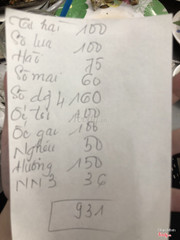 Tu hài 100
Sò lụa 100
Hàu 75
Sò mai 60
Sò dg 4 160
Ốc tỏi 100
Ốc gai 100
Nghêu 50
Hương 150
NN3 36
931